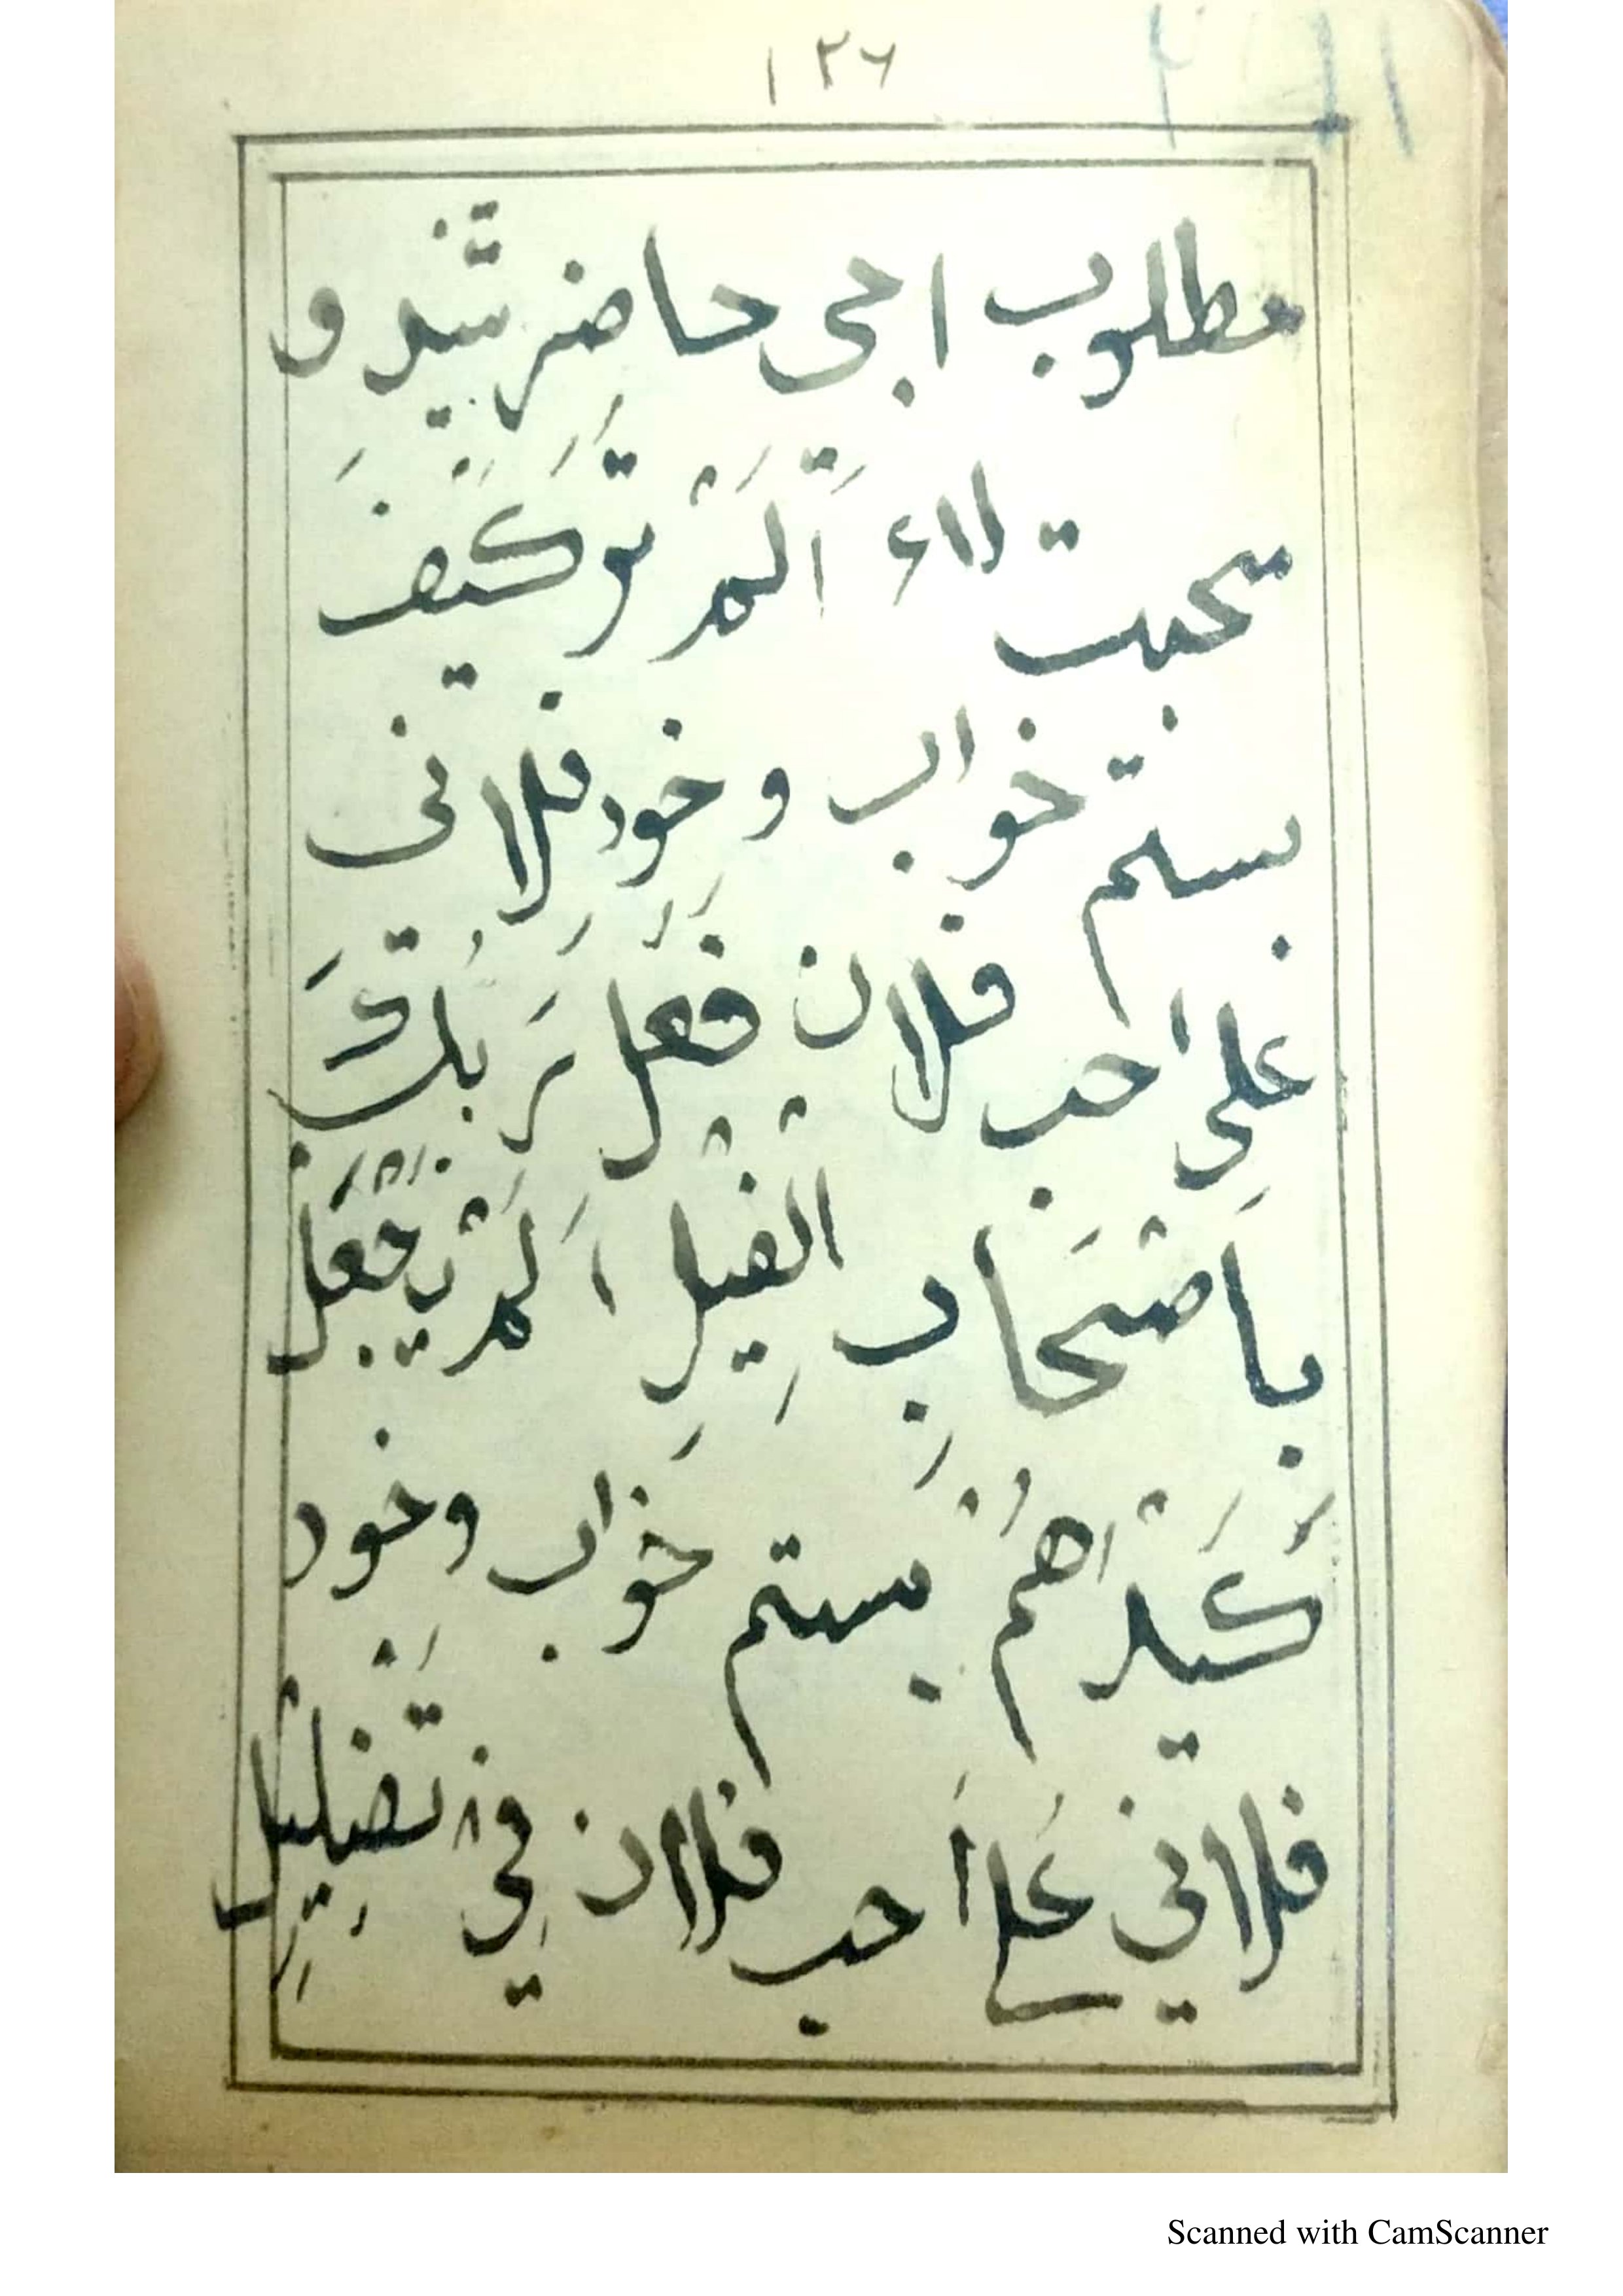 ١٢٦
مطلوب اجی حاضر شد و
محبت لا ٤ اَلَمْ تَرَ كَيْفَ
بستم خواب و خود فلانی
علی احب فلان فَعَلَ رَبُّكَ
بِاَصْحَابِ الْفِيْلِ اَلَمْ يَجْعَلْ
كَيْدَاهُمْ بستم خواب و خود
فلانی علی أحب فلان فِيْ تَضْلِيْلٍ
Scanned with CamScanner